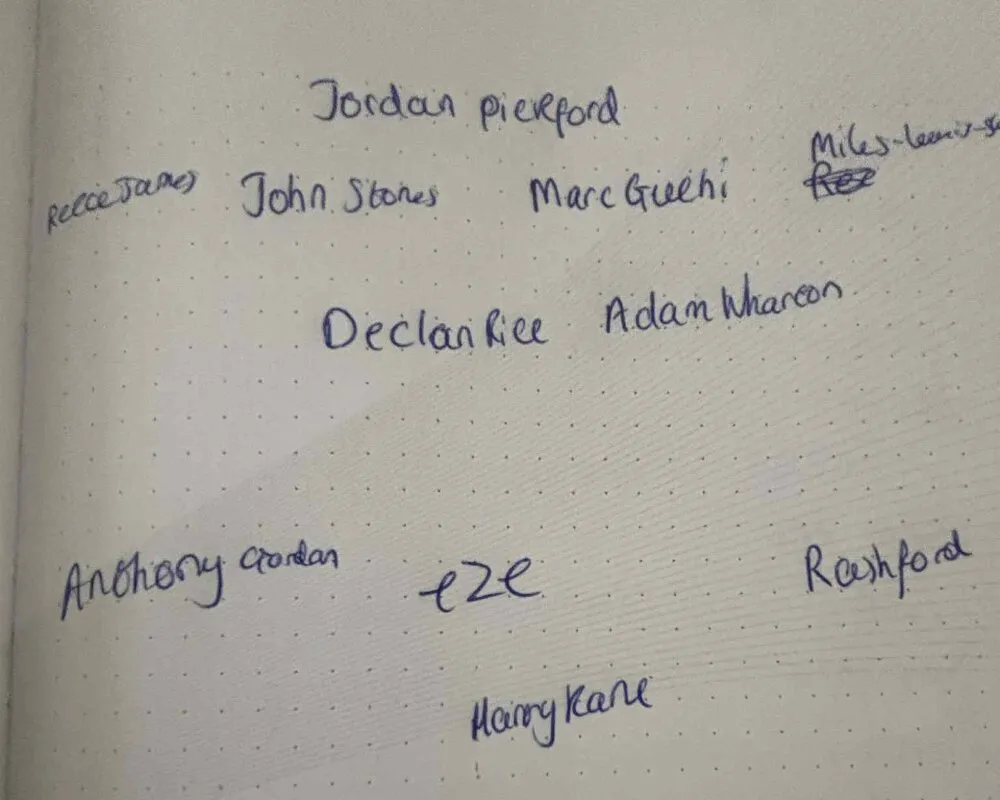 Jordan Pickford
Reece James John Stones Marc Guehi Miles-lewis-s
Declan Rice Adam Wharton
Anthony Gordan eze Rashford
Harry Kane